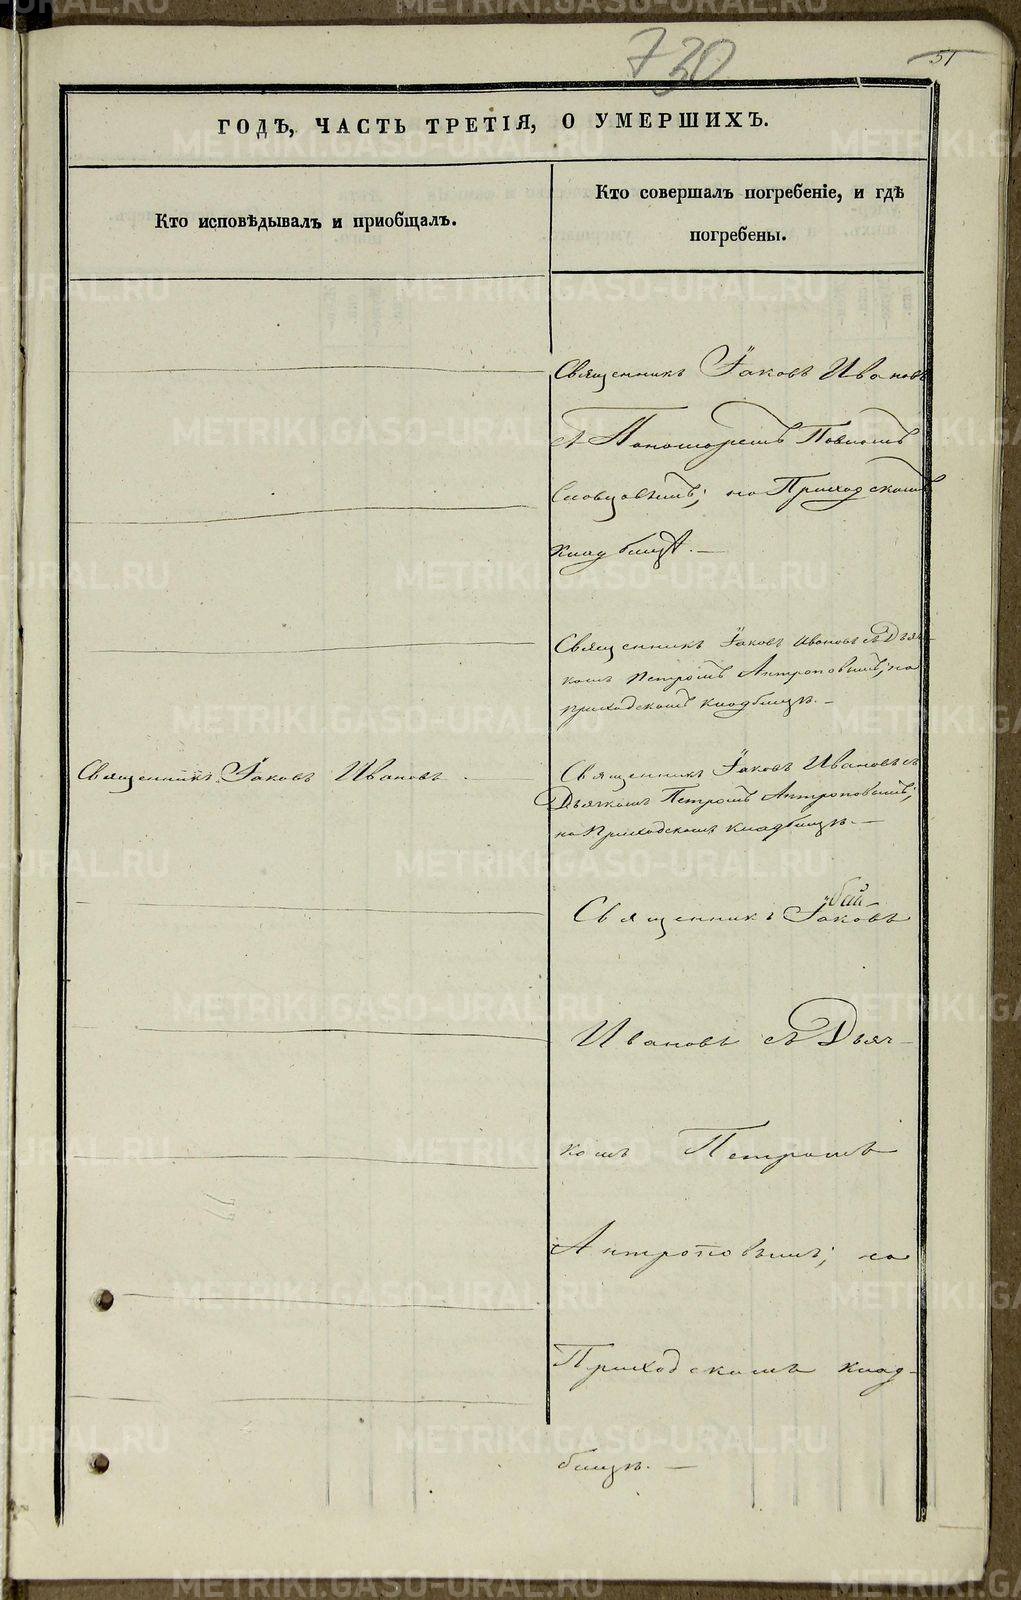 730
51
ГОДЪ, ЧАСТЬ ТРЕТІЯ, О УМЕРШИХЪ.
Кто исповѣдывалъ и пріобщалъ.
Кто совершалъ погребеніе, и гдѣ
погребены.
Священникъ Іаковъ Ивановъ
съ Пономаремъ Павломъ
Словцовымъ; на Приходскомъ
кладбищѣ. —
Священникъ Іаковъ Ивановъ съ Дьяч-
комъ Петромъ Антроповымъ; на
приходскомъ кладбищѣ. —
Священникъ Іаковъ Ивановъ
Священникъ Іаковъ Ивановъ съ
Дьячкомъ Петромъ Антроповымъ;
на Приходскомъ кладбищѣ. —
Священникъ Іаковъ
Ивановъ съ Дьяч-
комъ Петромъ
Антроповымъ; на
Приходскомъ клад-
бищѣ. —
METRIKI.GASO-URAL.RU